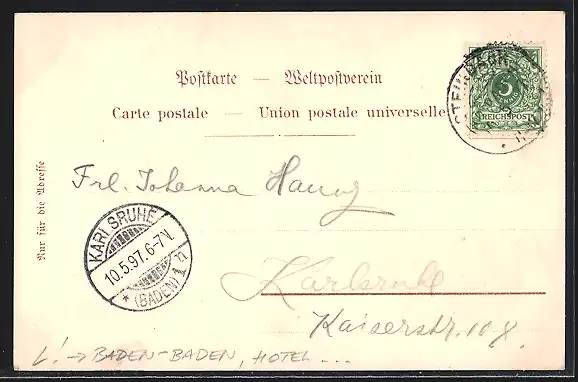 Postkarte — Weltpostverein
Carte postale — Union postale universelle
5
REICHSPOST
Nur für die Adresse
Frl. Johanna
KARLSRUHE
10.5.97.6-7N.
* (BADEN) 1 n
Karlsruhe
Kaiserstr. 108.
L! → BADEN-BADEN, HOTEL ...